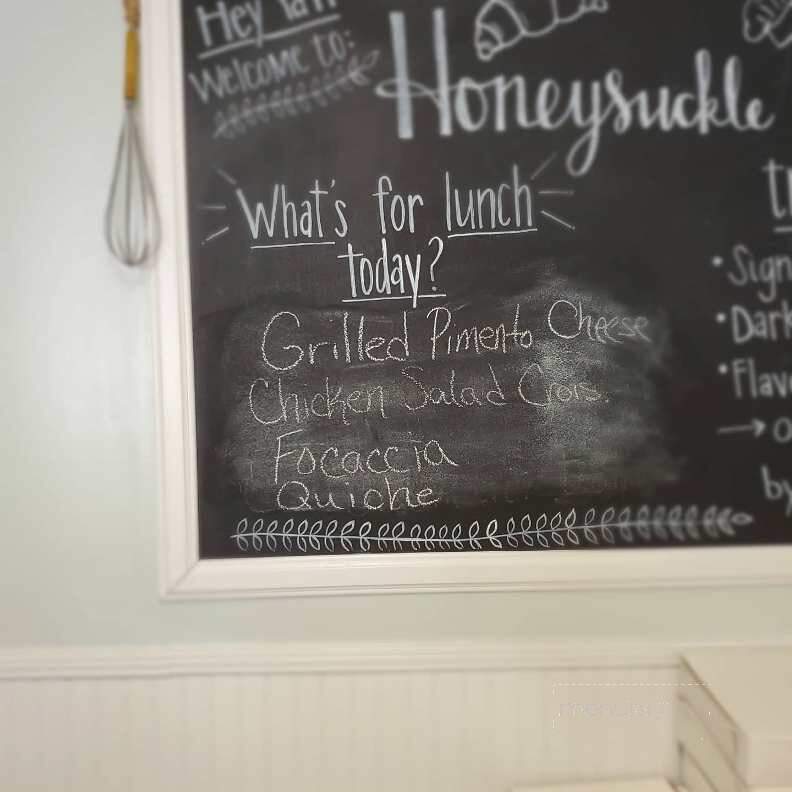 Hey Ya'll
Welcome to:
Honeysuckle
What's for lunch
today?
Grilled Pimento Cheese
Chicken Salad Crois.
Focaccia
Quiche
• Sign
• Dark
• Flav
by